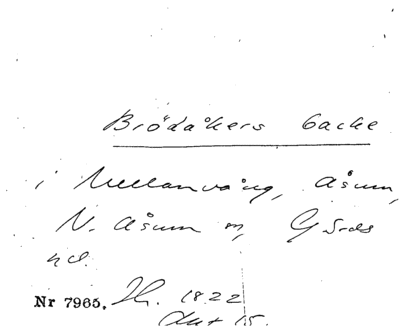 Brödåkers backe
i Mellanvång, Åsum,
N. Åsum sn, Gärds
hd.
Nr 7965. 1822